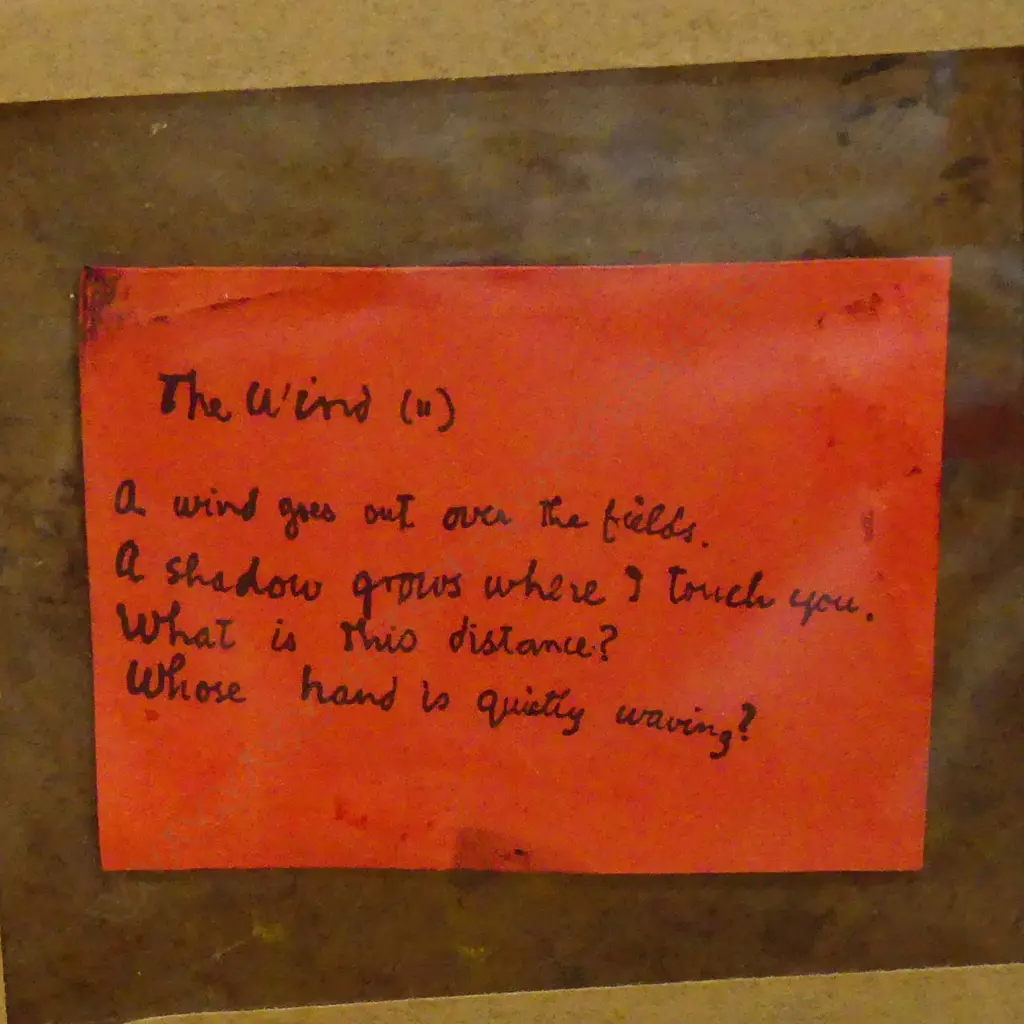 The Wind (ii)
A wind goes out over the fields.
A shadow grows where I touch you.
What is this distance?
Whose hand is quietly waving?